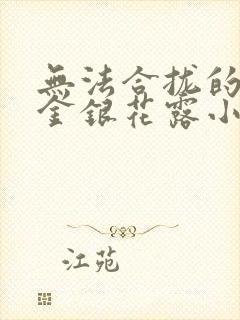 無法合拢的
金銀花露小
江苑